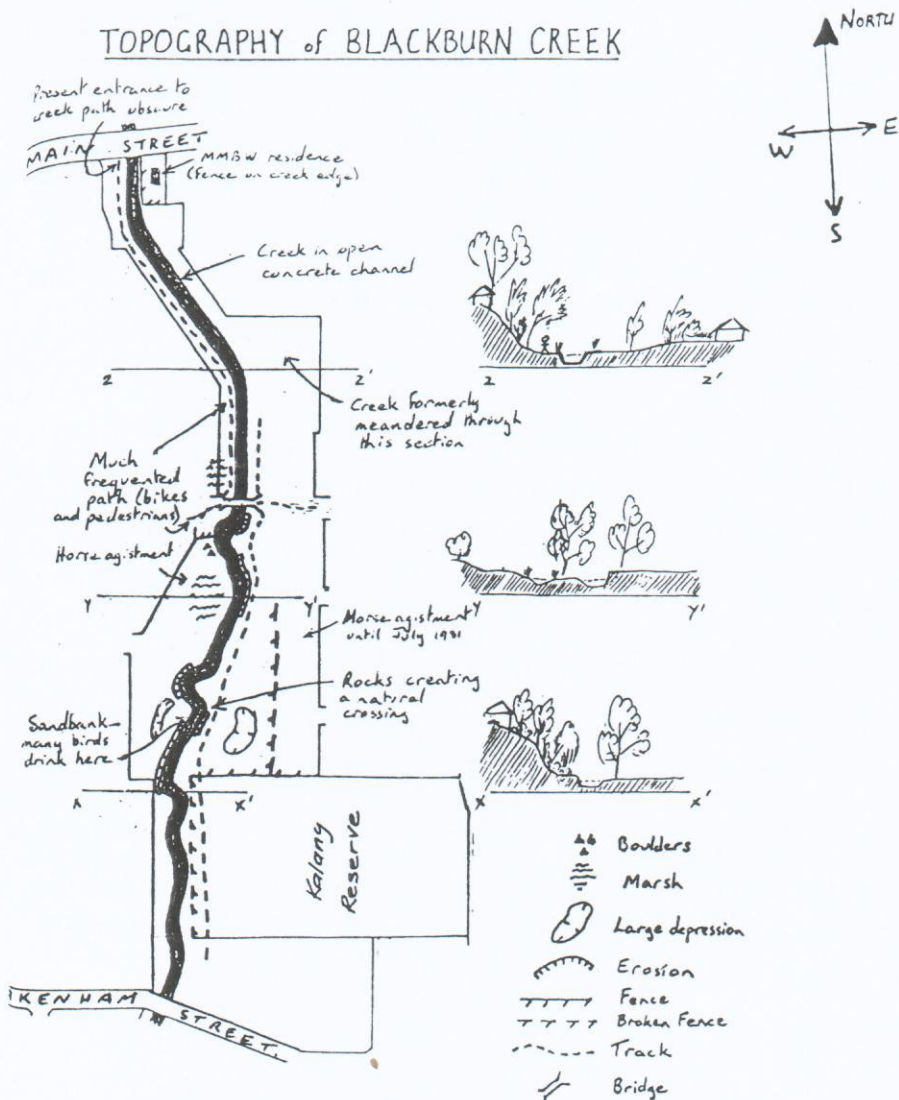 TOPOGRAPHY of BLACKBURN CREEK
NORTH
W
E
S
Present entrance to
creek path obscure
MAIN STREET
MMBW residence
(Fence on creek edge)
Creek in open
concrete channel
Z
Z'
Z
Z'
Creek formerly
meandered through
this section
Much
frequented
path (bikes
and pedestrians)
Horse agistment
Y
Y'
Y
Y'
Horse agistment
until July 1981
Rocks creating
a natural
crossing
Sandbank -
many birds
drink here
X
X'
X
X'
Kalang
Reserve
KENHAM
STREET.
Boulders
Marsh
Large depression
Erosion
Fence
Broken Fence
Track
Bridge